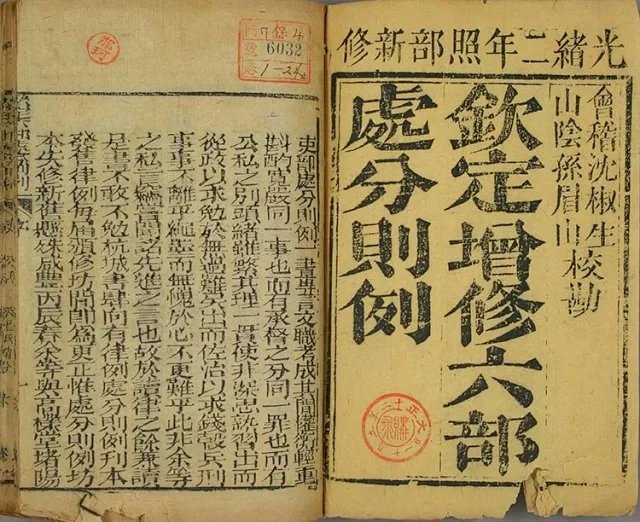 光緒二年照部新修
會稽沈椒生
山陰孫眉山校勘
欽定增修六部
處分則例
吏部處分則例一書專言文職者成其間權衡輕重
斟酌寬嚴同一事也而有承督之分同一罪也而有
公私之別頭緒雖繁其理一貫使非深思熟習出而
從政以求勉於無過難矣出而佐治以求錢穀兵刑
事事不離乎繩墨而無愧於心不更難乎此非余等
之私言蓋嘗聞諸先進之言也故於讀律之餘兼讀
是書不敢不勉杭城書肆向有律例處分則例刊本
發售律例每屆頒修坊間卽爲更正惟處分則例坊
本失修新舊懸殊咸豐丙辰春余等與高堂堵陽
門
號 6032
卷 1-24
購求